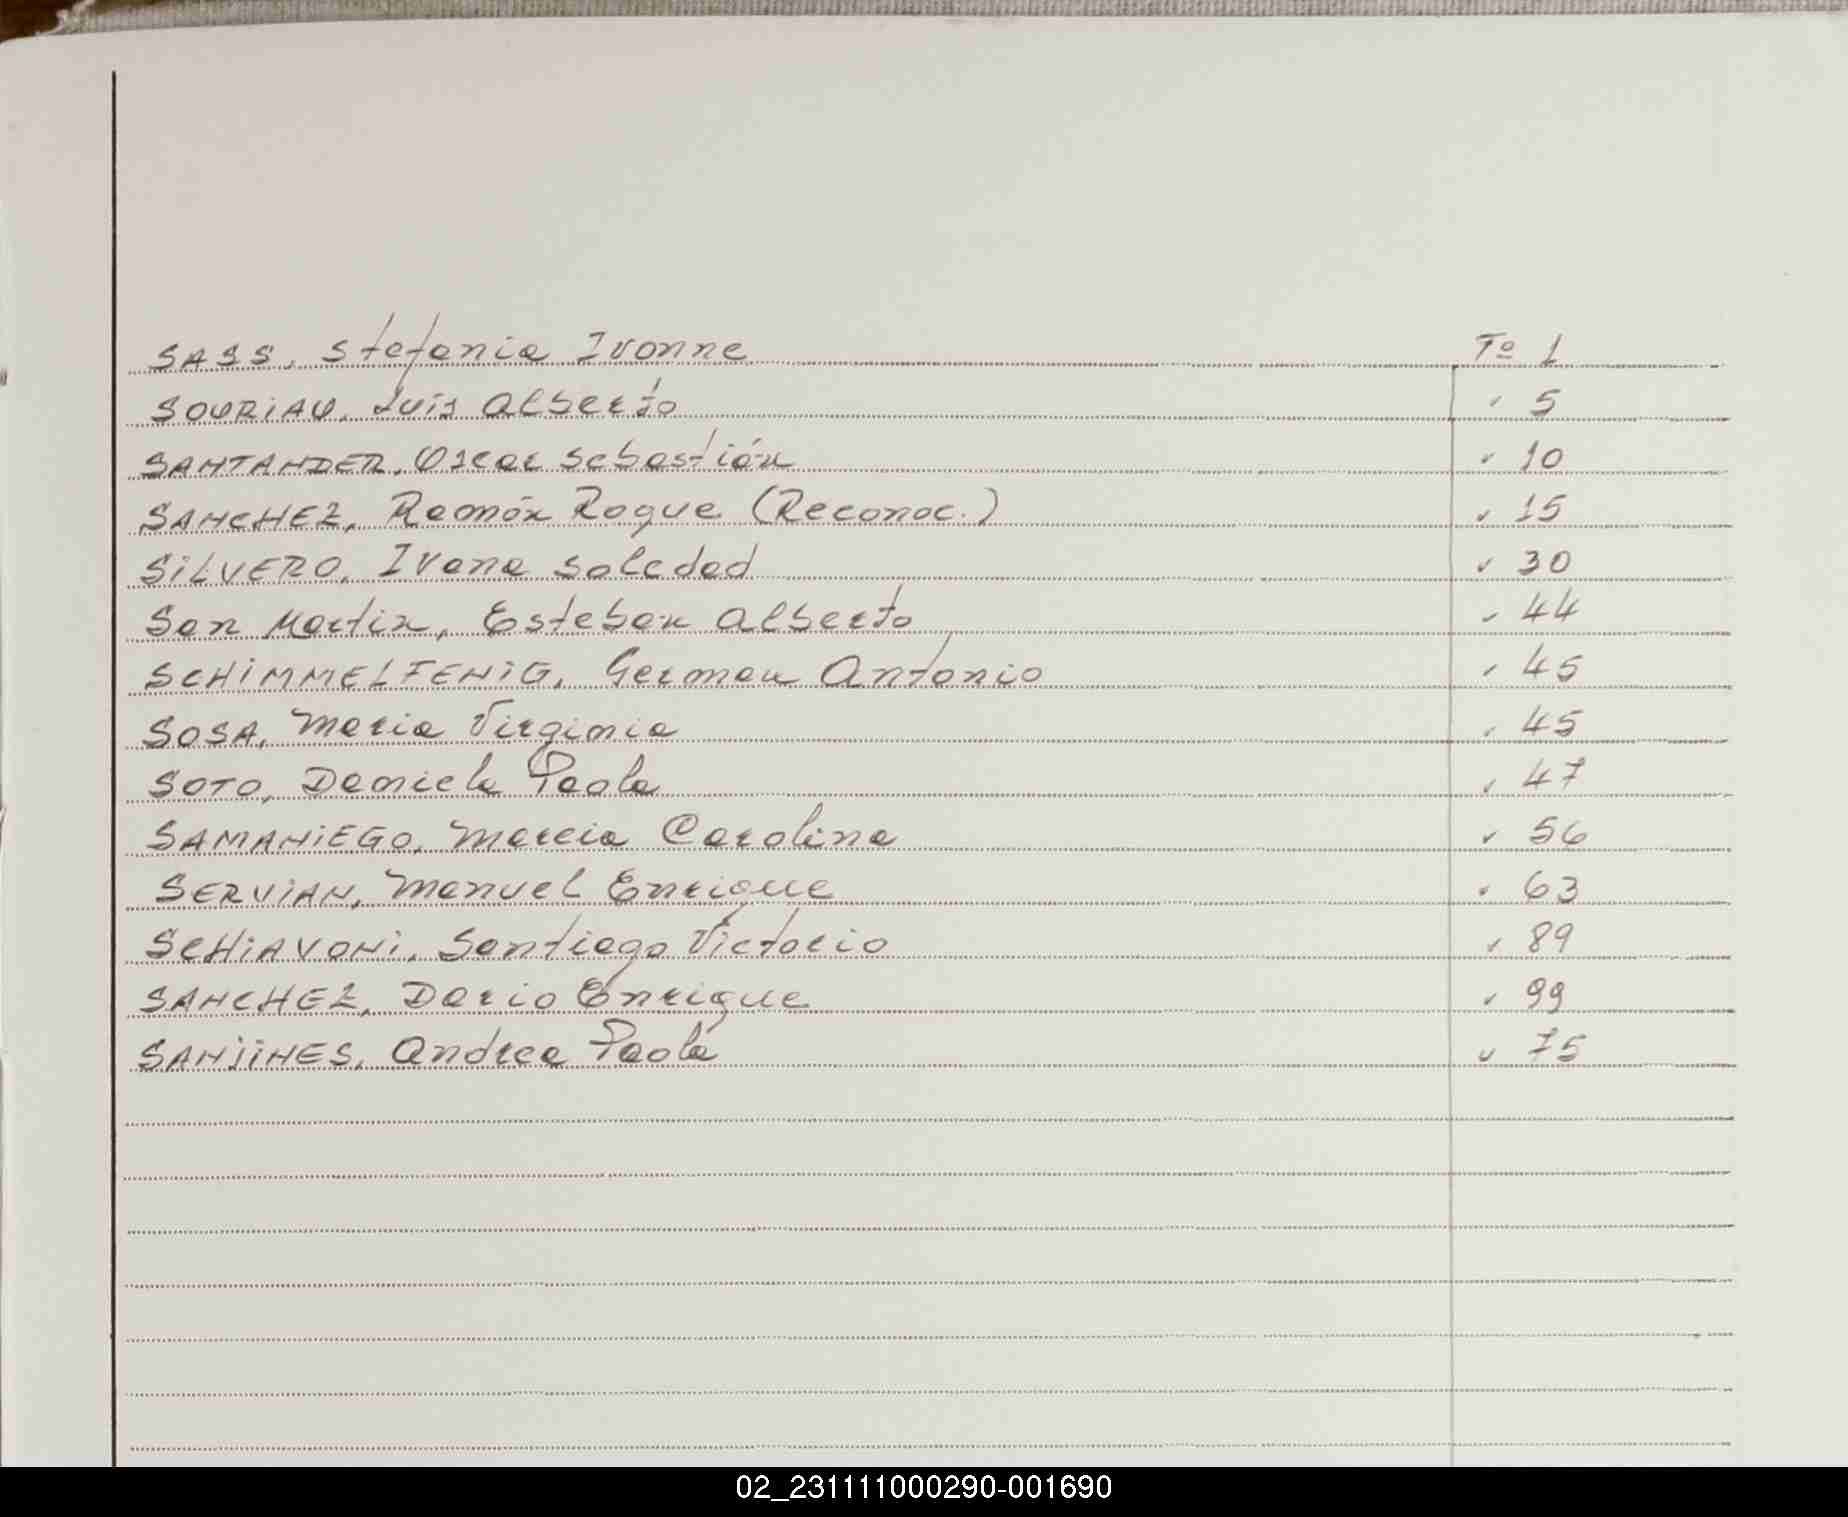 SASS, Stefania Ivonne Fº 1
SOURIAU, Luis Alberto " 5
SANTANDER, Oscar Sebastián " 10
SANCHEZ, Ramón Roque (Reconoc.) " 15
SiLVERO, Ivana Soledad " 30
San Martin, Esteban Alberto " 44
SCHiMMELFENiG, German Antonio " 45
SOSA, Maria Virginia " 45
SOTO, Daniela Paola " 47
SAMANiEGO, Marcia Carolina " 56
SERViAN, Manuel Enrique " 63
SCHiAVONi, Santiago Victorio " 89
SANCHEZ, Dario Enrique " 99
Andrea Paola " 75
02_231111000290-001690